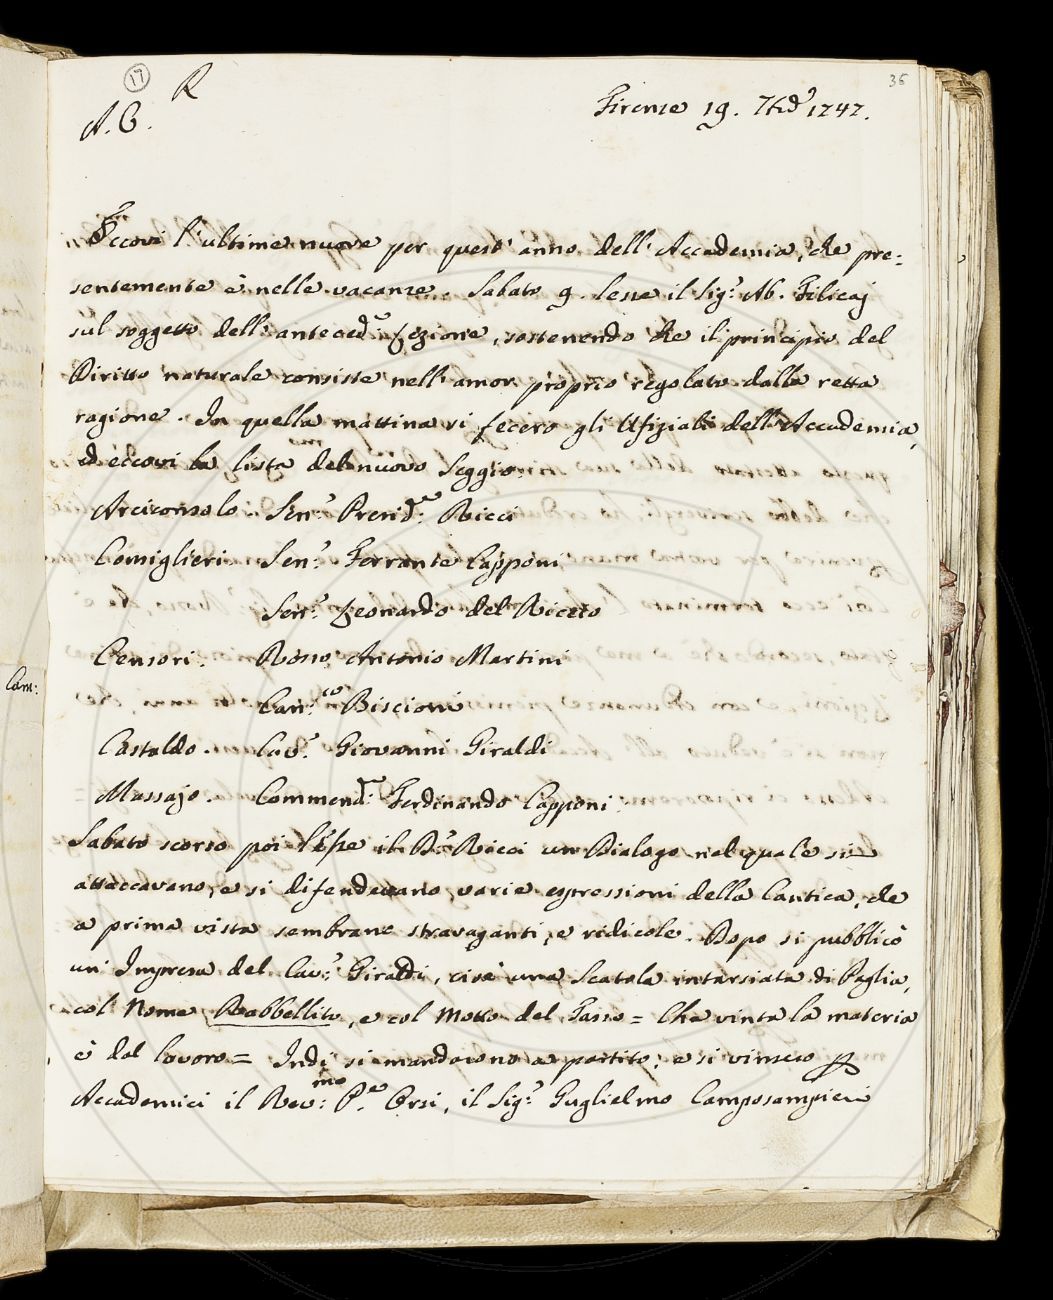 17 R 36
A. C. Firenze 19. 7bre 1747.
Eccovi l'ultime nuove per quest'anno dell'Accademia, che pre=
sentemente è nelle vacanze. Sabato 9. lesse il Sig.r Ab. Filicaj
sul soggetto dell'anteced.e Lezione, sostenendo che il principio del
Diritto naturale consiste nell'amor proprio regolato dalla retta
ragione. In quella mattina si fecero gli Ufiziali dell'Accademia,
ed eccovi la lista del nuovo Seggio.
Arciconsolo. Sen.r Presid.e Ricci
Consiglieri Sen.r Ferrante Capponi
Sen.r Leonardo del Riccio
Censori. Rosso Antonio Martini
Can.co Biscioni
Castaldo. Cav.r Giovanni Giraldi
Massajo. Commend.e Ferdinando Capponi
Sabato scorso poi lesse il D.r Ricci un Dialogo nel quale si
attaccavano, e si difendevano varie espressioni della Cantica, che
a prima vista sembrano stravaganti, e ridicole. Dopo si pubblicò
un'Impresa del Cav.r Giraldi, cioè una Scatola intarsiata di Paglia,
col Nome Rabbellito, e col Motto del Tasso = Che vinta la materia
è dal lavoro = Indi si mandarono a partito, e si vinsero p
Accademici il Rev.mo P.e Orsi, il Sig.r Guglielmo Camposampieri
Com: